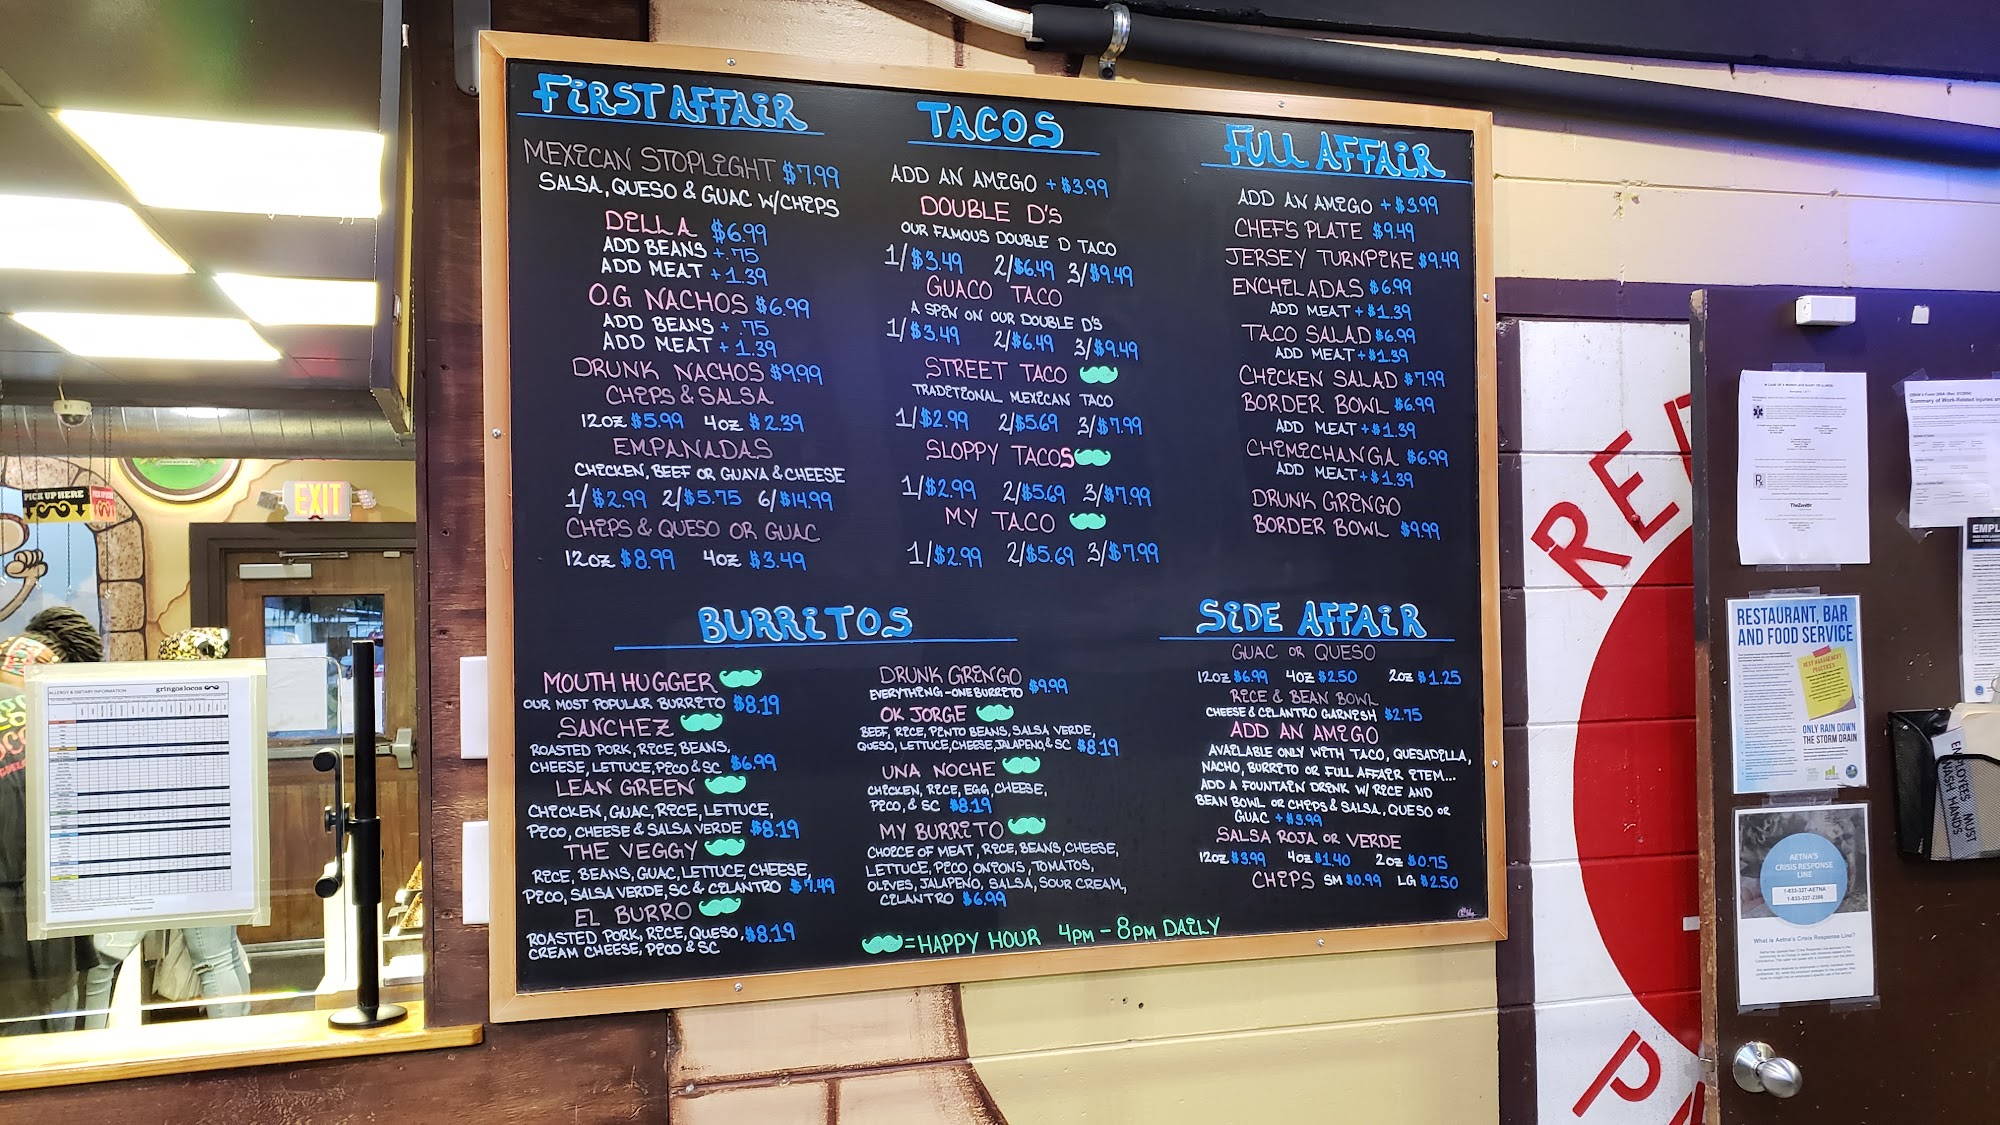 FIRST AFFAIR
MEXICAN STOPLIGHT $7.99
SALSA, QUESO & GUAC W/CHIPS
DILLA $6.99
ADD BEANS +.75
ADD MEAT +1.39
O.G NACHOS $6.99
ADD BEANS + .75
ADD MEAT + 1.39
DRUNK NACHOS $9.99
CHIPS & SALSA
12oz $5.99 4oz $2.39
EMPANADAS
CHICKEN, BEEF OR GUAVA & CHEESE
1/$2.99 2/$5.75 6/$14.99
CHIPS & QUESO OR GUAC
12oz $8.99 4oz $3.49
TACOS
ADD AN AMIGO +$3.99
DOUBLE D'S
OUR FAMOUS DOUBLE D TACO
1/$3.49 2/$6.49 3/$9.49
GUACO TACO
A SPIN ON OUR DOUBLE D'S
1/$3.49 2/$6.49 3/$9.49
STREET TACO
TRADITIONAL MEXICAN TACO
1/$2.99 2/$5.69 3/$7.99
SLOPPY TACOS
1/$2.99 2/$5.69 3/$7.99
MY TACO
1/$2.99 2/$5.69 3/$7.99
FULL AFFAIR
ADD AN AMIGO +$3.99
CHEF'S PLATE $9.49
JERSEY TURNPIKE $9.49
ENCHILADAS $6.99
ADD MEAT +$1.39
TACO SALAD $6.99
ADD MEAT +$1.39
CHICKEN SALAD $7.99
BORDER BOWL $6.99
ADD MEAT +$1.39
CHIMICHANGA $6.99
ADD MEAT +$1.39
DRUNK GRINGO
BORDER BOWL $9.99
BURRITOS
MOUTH HUGGER
OUR MOST POPULAR BURRITO $8.19
SANCHEZ
ROASTED PORK, RICE, BEANS,
CHEESE, LETTUCE, PICO & SC $6.99
LEAN GREEN
CHICKEN, GUAC, RICE, LETTUCE,
PICO, CHEESE & SALSA VERDE $8.19
THE VEGGY
RICE, BEANS, GUAC, LETTUCE, CHEESE,
PICO, SALSA VERDE, SC & CILANTRO $7.49
EL BURRO
ROASTED PORK, RICE, QUESO, $8.19
CREAM CHEESE, PICO & SC
DRUNK GRINGO
EVERYTHING-ONE BURRITO $9.99
OK JORGE
BEEF, RICE, PINTO BEANS, SALSA VERDE,
QUESO, LETTUCE, CHEESE, JALAPENO & SC $8.19
UNA NOCHE
CHICKEN, RICE, EGG, CHEESE,
PICO, & SC $8.19
MY BURRITO
CHOICE OF MEAT, RICE, BEANS, CHEESE,
LETTUCE, PICO, ONIONS, TOMATOS,
OLIVES, JALAPENO, SALSA, SOUR CREAM,
CILANTRO $6.99
=HAPPY HOUR 4PM-8PM DAILY
SIDE AFFAIR
GUAC OR QUESO
12oz $6.99 4oz $2.50 2oz $1.25
RICE & BEAN BOWL
CHEESE & CILANTRO GARNISH $2.75
ADD AN AMIGO
AVAILABLE ONLY WITH TACO, QUESADILLA,
NACHO, BURRITO OR FULL AFFAIR ITEM...
ADD A FOUNTAIN DRINK W/ RICE AND
BEAN BOWL OR CHIPS & SALSA, QUESO OR
GUAC +$3.99
SALSA ROJA OR VERDE
12oz $3.99 4oz $1.40 2oz $0.75
CHIPS SM $0.99 LG $2.50
PICK UP HERE
EXIT
ALLERGY & DIETARY INFORMATION gringos locos
RESTAURANT, BAR
AND FOOD SERVICE
BEST MANAGEMENT
PRACTICES
ONLY RAIN DOWN
THE STORM DRAIN
AETNA'S
CRISIS RESPONSE
LINE
1-833-327-AETNA
1-833-327-2386
What is Aetna's Crisis Response Line?
Summary of Work-Related Injuries
EMPLOYEES MUST
WASH HANDS